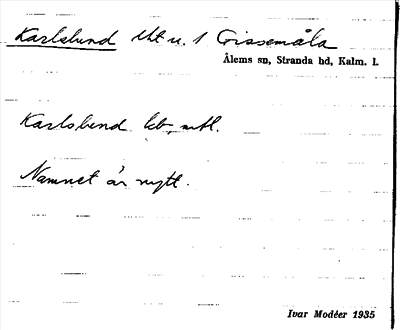 Karlslund lht u. 1 Gissemåla
Ålems sn, Stranda hd, Kalm. l.
Karlslund lht, mtl.
Namnet är nytt.
Ivar Modéer 1935